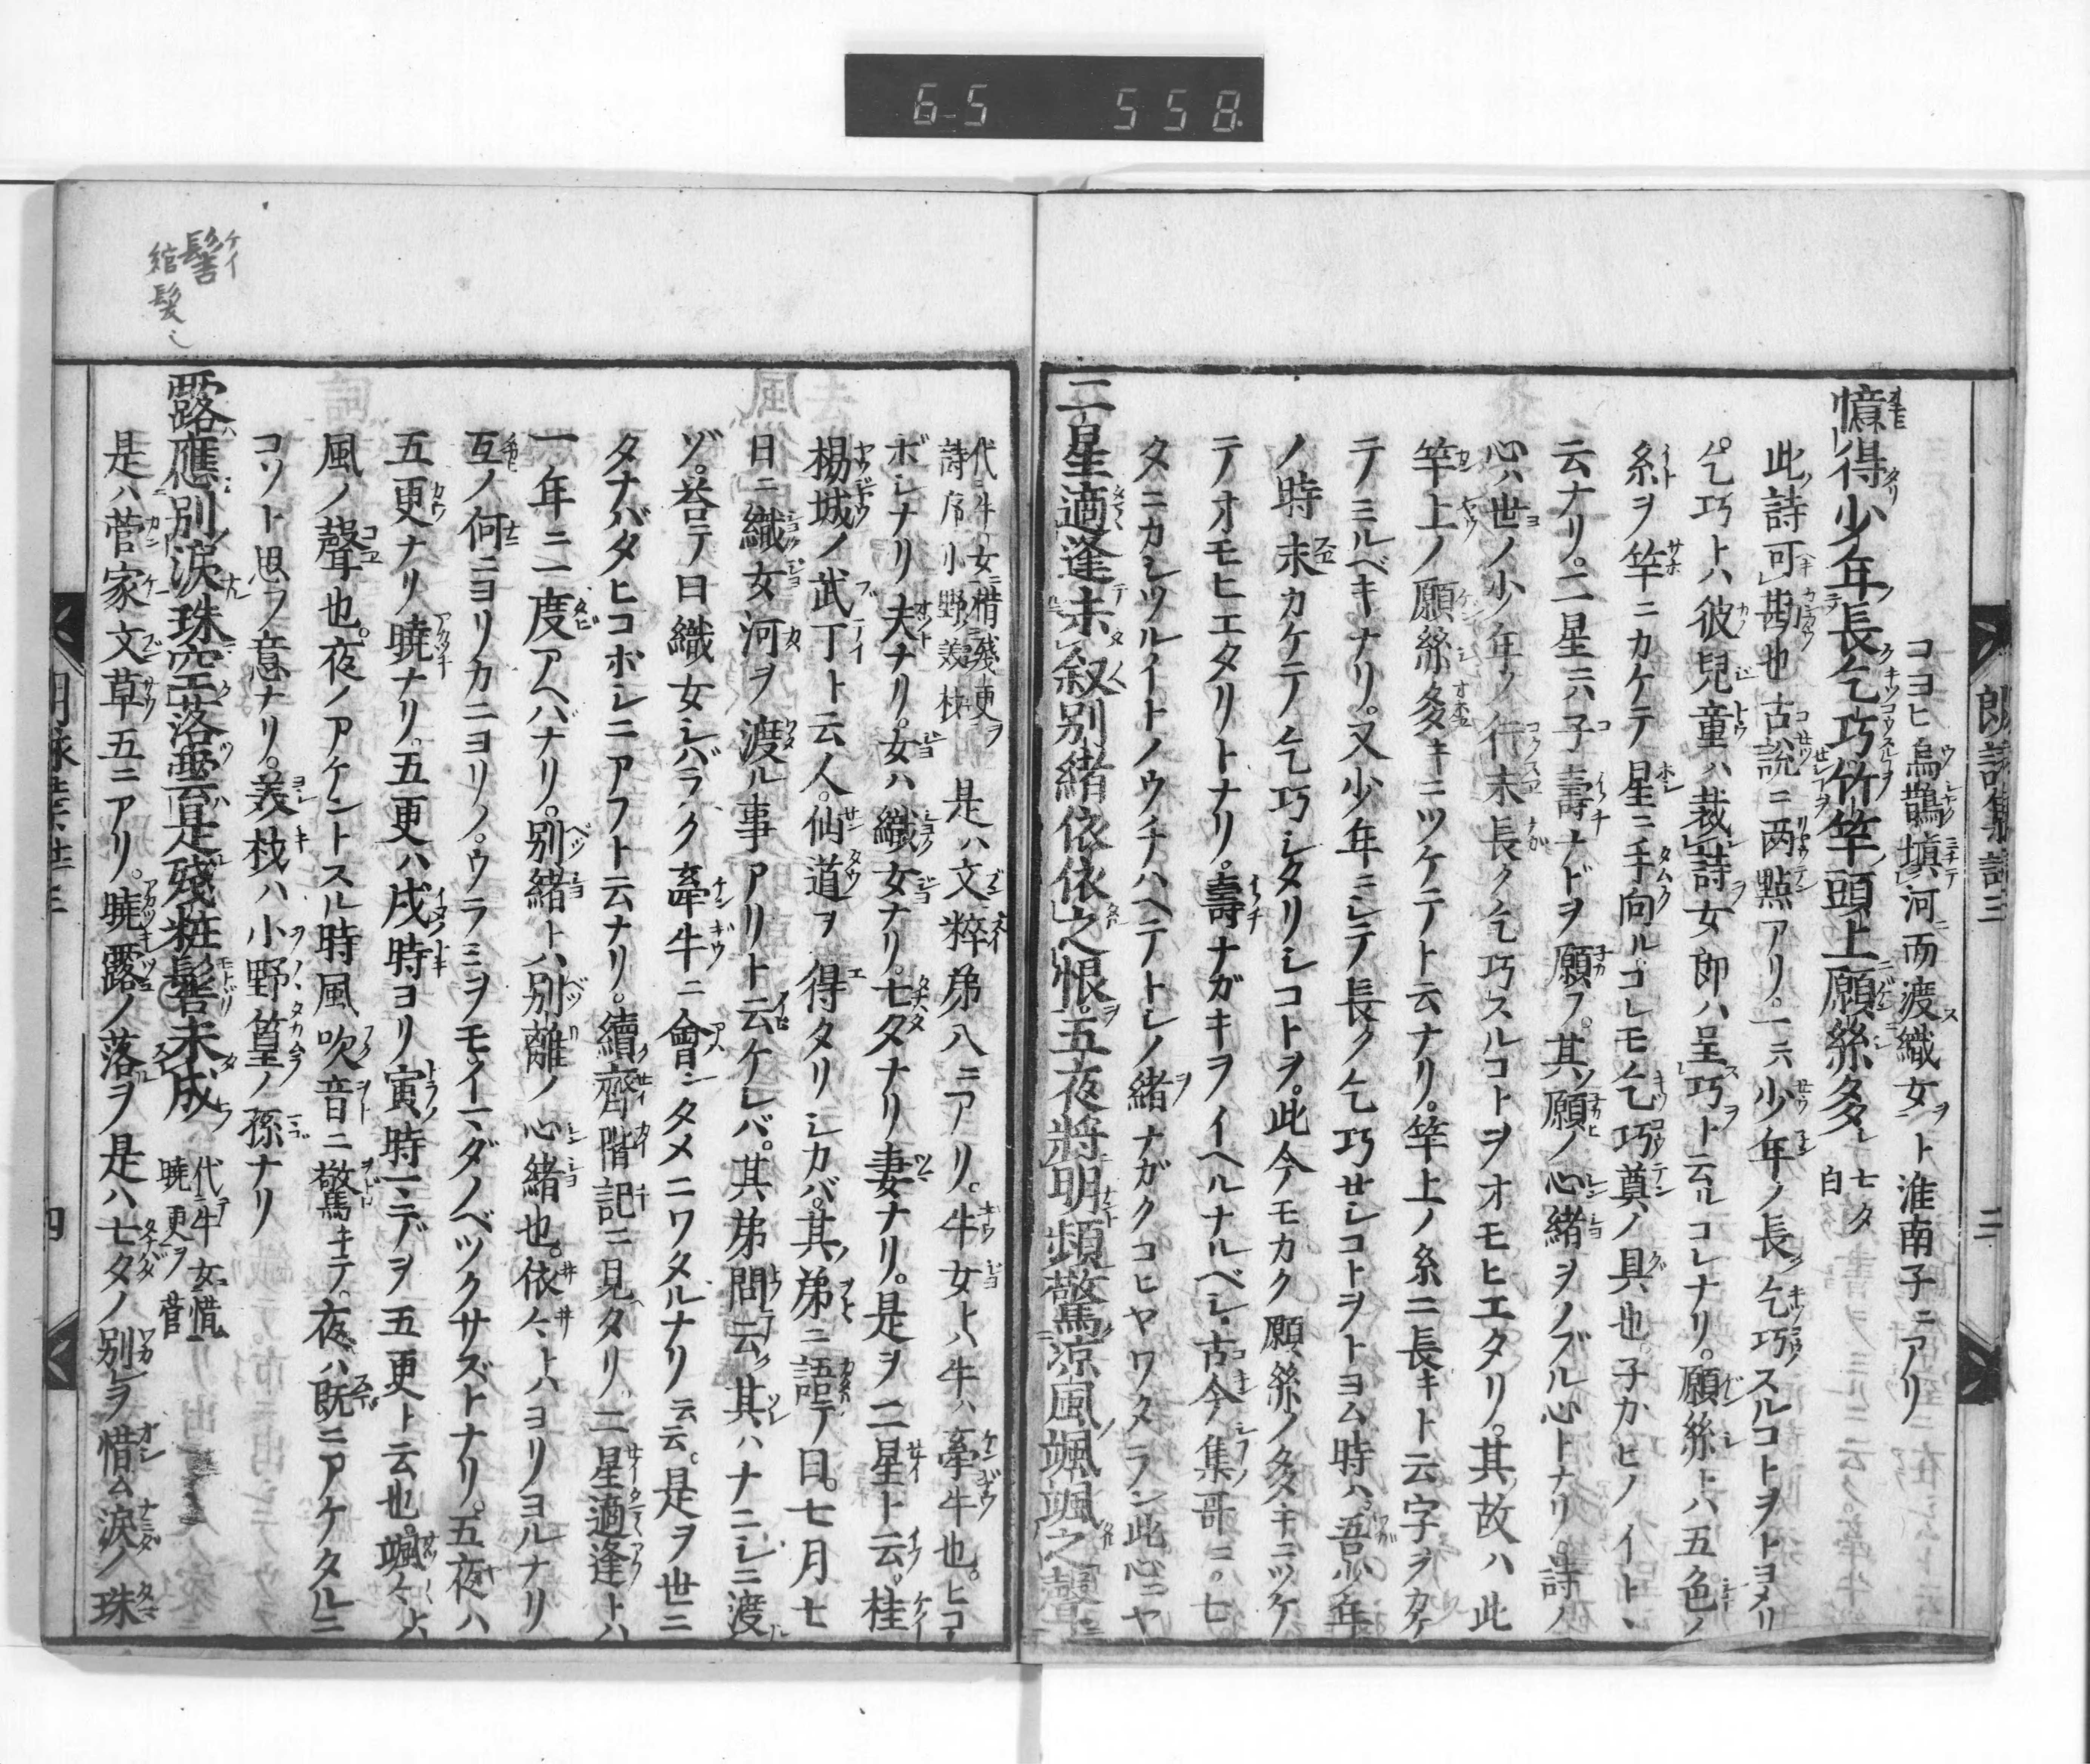 6-5 558
コヨヒ烏鵲塡河而渡織女ヲト淮南子ニアリ
憶得少年長乞巧竹竿頭上願絲多シ 七夕 白
此詩可勘也古說ニ两點アリ。一六少年ノ長ク乞巧スルコトヲトヨメリ
乞巧トハ彼兒童ハ裁詩女郎ハ呈巧ト云ルコレナリ。願絲トハ五色ノ
糸ヲ竿ニカケテ星ニ手向ルコレモ乞巧奠ノ具也。子カヒノイト丶
云ナリ。二星ニハ子壽ナドヲ願フ。其ノ願ノ心緒ヲノブル心トナリ。詩ノ
心ハ世ノ少年ノ行末長ク乞巧スルコトヲオモヒエタリ。其故ハ此
竿上ノ願絲多キニツケテト云ナリ。竿上ノ糸ニ長キト云字ヲカケ
テミルベキナリ。又少年ニシテ長ク乞巧せシコトヲトヨム時ハ吾少年
ノ時末カケテノ乞巧シタリシコトヲ。此今モカク願絲ノ多キニツケ
テオモヒエタリトナリ。壽ナガキヲイヘルナルベシ。古今集哥ニ。七
タニカシツルイトノウチハヘテトシノ緒ナガクコヒヤワタラン此心ニヤ
二星適逢未叙別緒依依之恨。五夜將明頻驚凉風颯颯之聲
代牛女惜殘更ヲ
詩序小野美材
是ハ文粹弟八ニアリ。牛女トハ牛ハ牽牛也。ヒコ
ボシナリ夫ナリ。女ハ織女ナリ。七夕ナリ妻ナリ。是ヲ二星ト云。桂
楊城ノ武丁ト云人。仙道ヲ得タリシカバ。其ノ弟ニ語テ曰。七月七
日ニ織女河ヲ渡ル事アリト云ケレバ。其弟問云ク其ハナニシニ渡
ゾ。答テ曰織女シバラク牽牛ニ會シタメニワタルナリ云云。是ヲ世ニ
タナバタヒコボシニアフト云ナリ。續齊階記ニ見タリ二星適逢トハ
一年ニ一度アヘバナリ。別緒トハ別離ノ心緒也。依々トハヨリヨルナリ
互ノ何ニヨリカニヨリノ。ウラミヲモイマダノベツクサズトナリ。五夜ハ
五更ナリ曉ナリ。五更ハ戌時ヨリ寅時マデヲ五更ト云也。颯々トハ
風ノ聲也。夜ノアケントスル時風吹音ニ驚キテ。夜ハ既ニアケタルニ
コソト思フ意ナリ。美材ハ小野篁ノ孫ナリ
露應別淚珠空落雲是殘粧髻未成 代牛女惜
曉更ヲ 菅
是ハ菅家文草五ニアリ。曉露ノ落ヲ是ハ七夕ノ別レヲ惜ム淚ノ珠
髻 ケイ
綰髮也